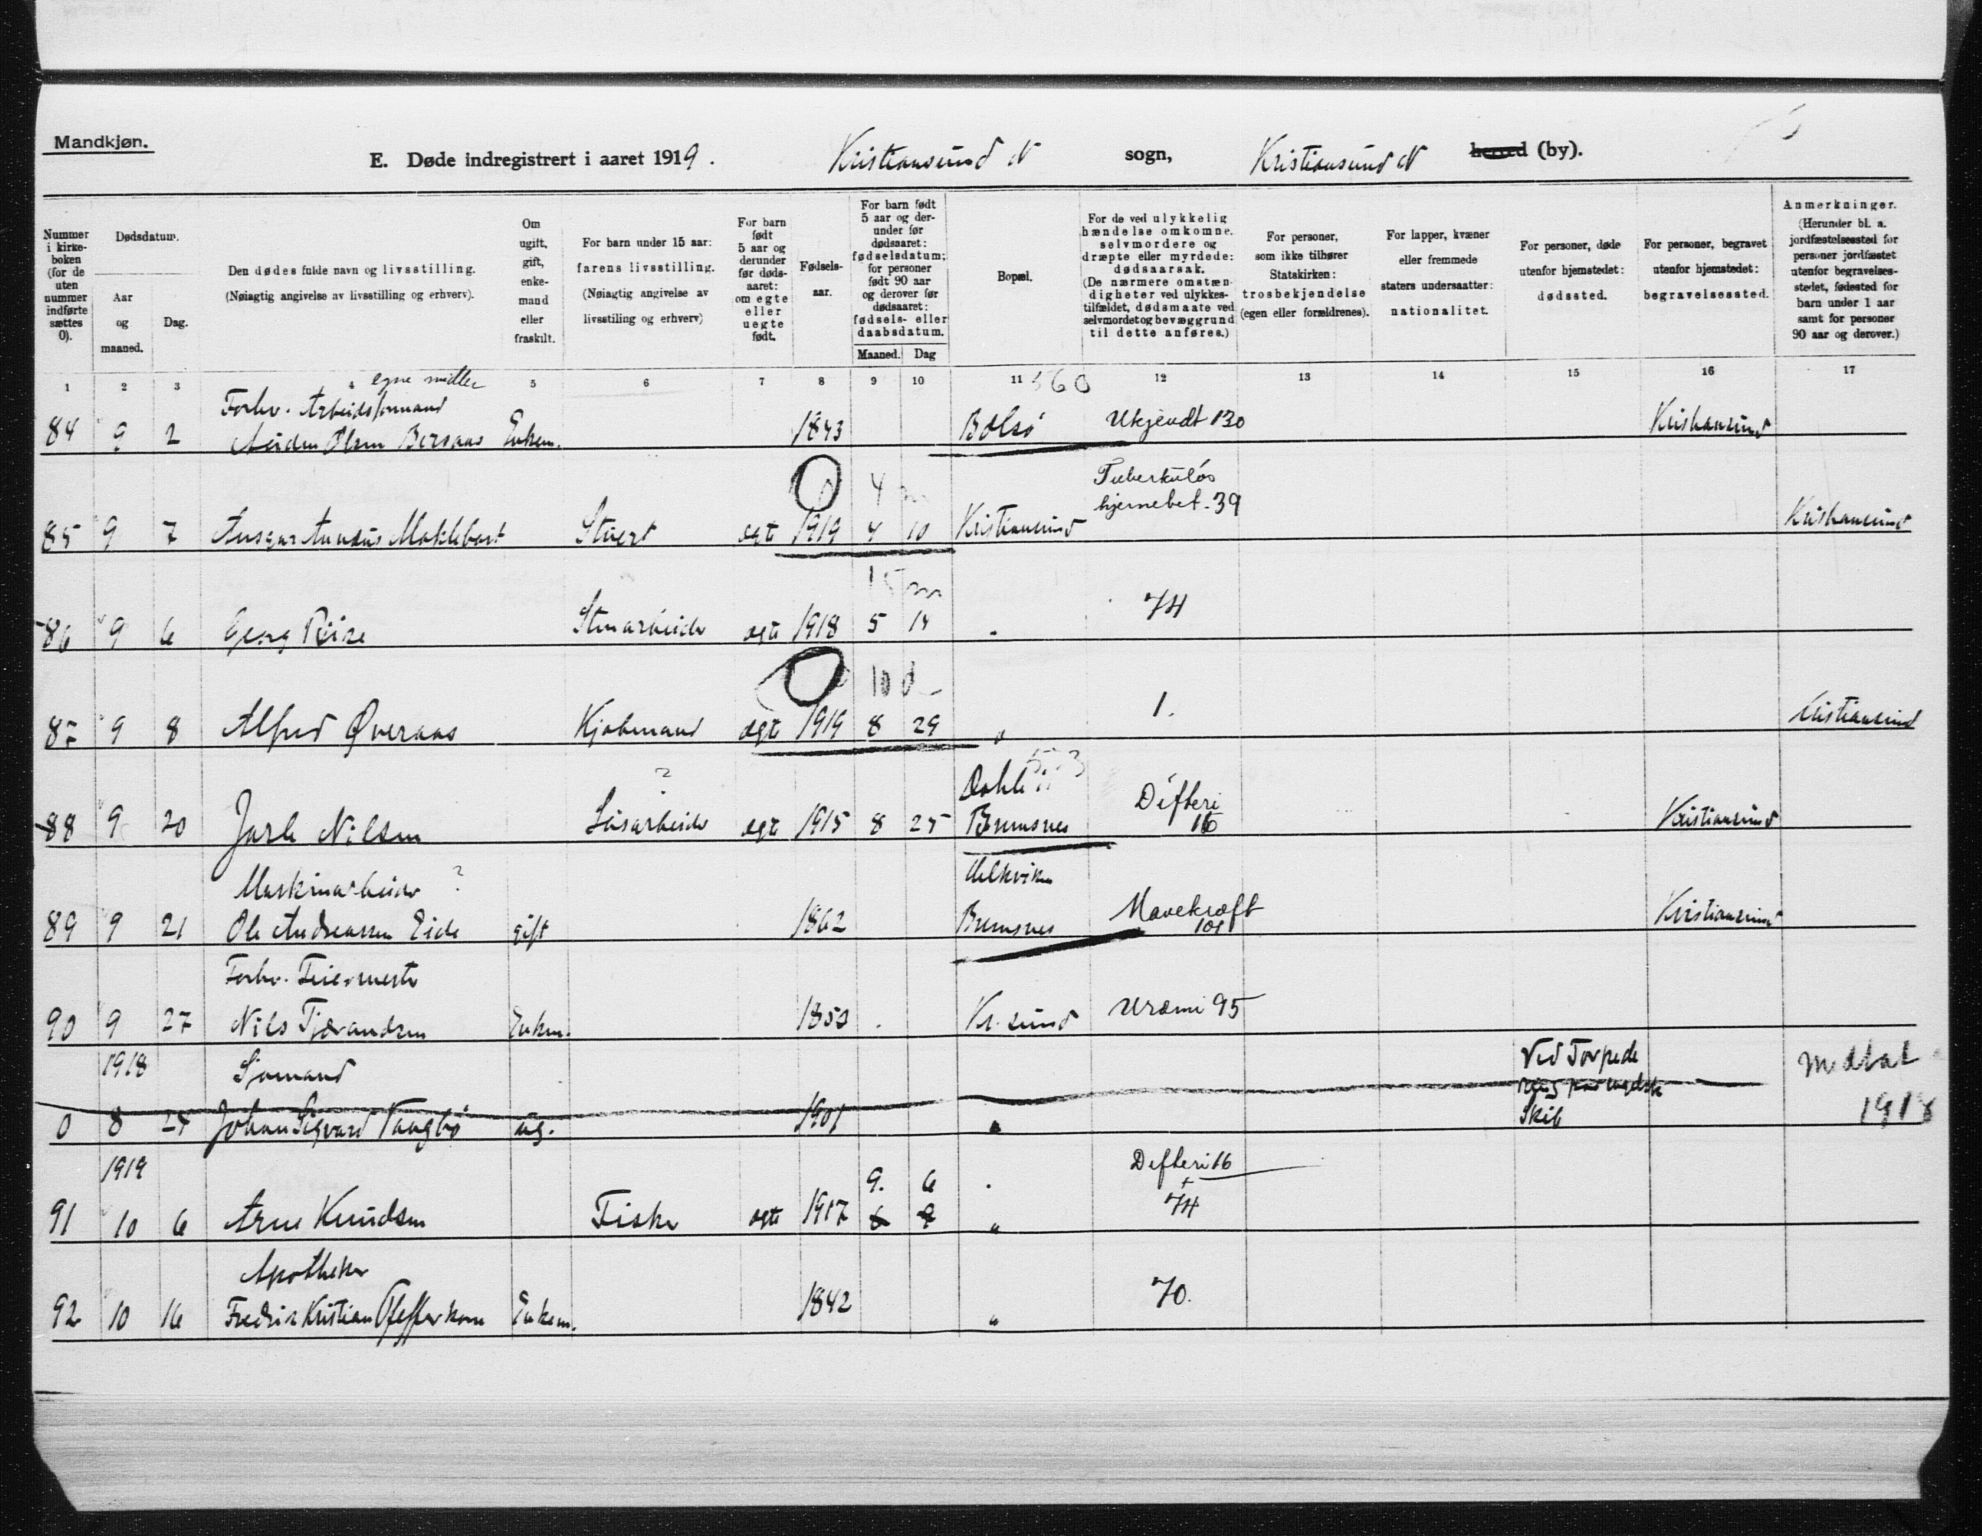 Mandkjøn.
E. Døde indregistrert i aaret 1919. Kristiansund N sogn, Kristiansund N herred (by).
Nummer i kirke-boken (for de uten nummer indførte sættes 0).
Dødsdatum.
Aar og maaned.
Dag.
Den dødes fulde navn og livsstilling.
(Nøiagtig angivelse av livsstilling og erhverv).
Om ugift, gift, enke-mand eller fraskilt.
For barn under 15 aar: farens livsstilling.
(Nøiagtig angivelse av livsstiling og erhverv)
For barn født 5 aar og derunder før døds-aaret: om egte eller uegte født.
Fødsels-aar.
For barn født 5 aar og der-under før dødsaaret: fødselsdatum; for personer født 90 aar og derover før dødsaaret: fødsels- eller daabsdatum.
Maaned. Dag
Bopæl.
For de ved ulykkelig hændelse omkomne, selvmordere og dræpte eller myrdede: dødsaarsak.
(De nærmere omstæn-digheter ved ulykkes-tilfældet, dødsmaate ved selvmordet og bevæggrund til dette anføres.)
For personer, som ikke tilhører Statskirken: trosbekjendelse (egen eller forældrenes).
For lapper, kvæner eller fremmede staters undersaatter: nationalitet.
For personer, døde utenfor hjemstedet: dødssted.
For personer, begravet utenfor hjemstedet: begravelsessted.
Anmerkninger.
(Herunder bl. a. jordfæstelsessted for personer jordfæstet utenfor begravelses-stedet, fødested for barn under 1 aar samt for personer 90 aar og derover.)
1 2 3 4 5 6 7 8 9 10 11 12 13 14 15 16 17
egne midler 560
Forhv. Arbeidsformand
84 9 2 Olsen Bersaas Enkem. 1843 Bolsø Ukjendt 130 Kristiansund
0 4 m Tuberkuløs
hjernebet. 39
85 9 7 Ansgar Maklebost Stuert egte 1919 4 10 Kristiansund Kristiansund
15 m
86 9 6 Georg Riise Stenarbeider egte 1918 5 14 " 74
0 10 d
87 9 8 Alfred Øveraas Kjøbmand egte 1919 8 29 " 1. Kristiansund
? Dahle Difteri
88 9 20 Jarle Nilsen Løsarbeider egte 1915 8 25 Bremsnes 16 Kristiansund
Maskinarbeider ?
89 9 21 Ole Andreassen Eide gift 1862 Bremsnes Mavekræft 101 Kristiansund
Forhv. Feiermester
90 9 27 Nils Tjerandsen Enkem. 1853 Kr. sund Uræmi 95
1918 Sjømand Ved Torpede
medtat
0 8 25 Johan Sigvard ug. 1901 " Skib 1918
1919 9. 6 " Difteri 16
+
91 10 6 Arne Knudsen Fisker egte 1917 6 9 " 74
Apotheker
92 10 16 Fredrik Kristian Pfefferkorn Enkem. 1842 " 70.